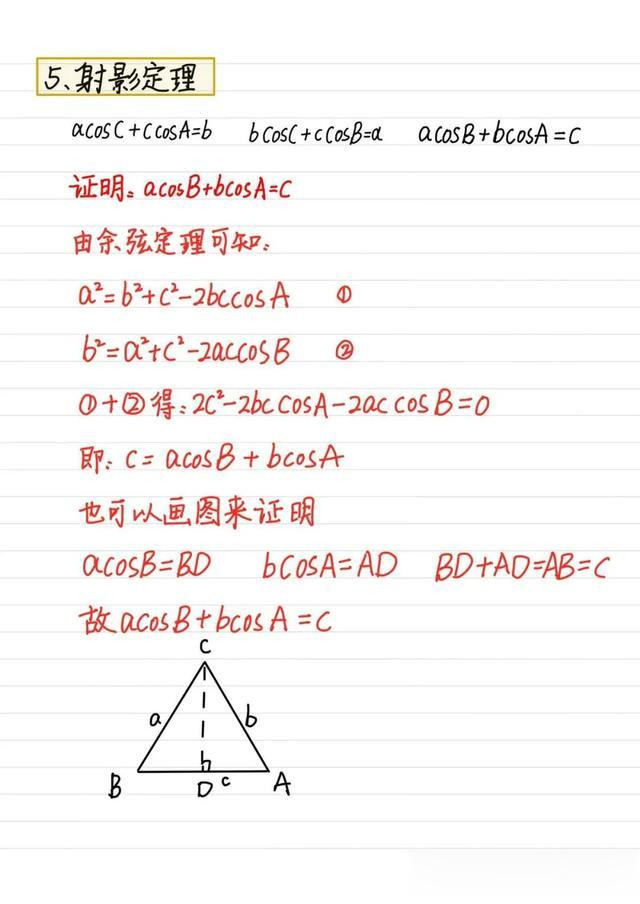 5、射影定理
acosC+ccosA=b bcosC+ccosB=a acosB+bcosA=c
证明：acosB+bcosA=c
由余弦定理可知：
a²=b²+c²-2bccosA ①
b²=a²+c²-2accosB ②
①+②得：2c²-2bccosA-2accosB=0
即：c=acosB+bcosA
也可以画图来证明
acosB=BD bcosA=AD BD+AD=AB=c
故acosB+bcosA=c
C
a b
B D c A